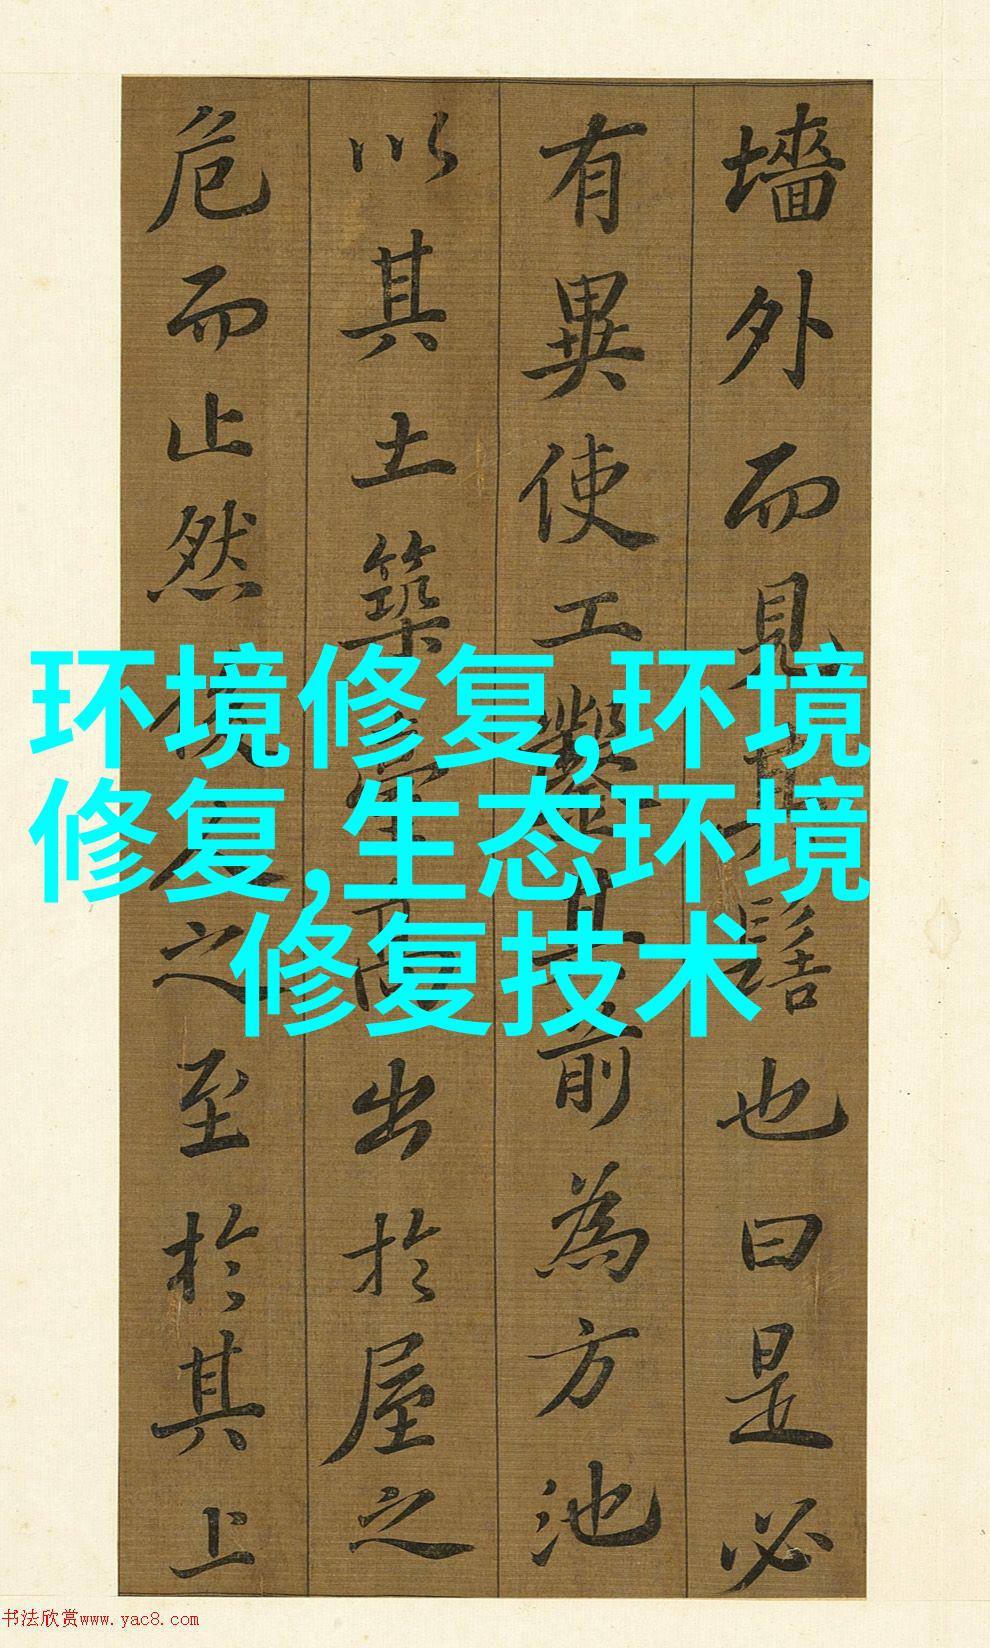 墻外而見其髻也曰是必
有異使工鑿其前為方池
以其土築臺高出於屋之
危而止然後人之至於其上
环境修复,环境
修复,生态环境
修复技术
书法欣赏www.yac8.com